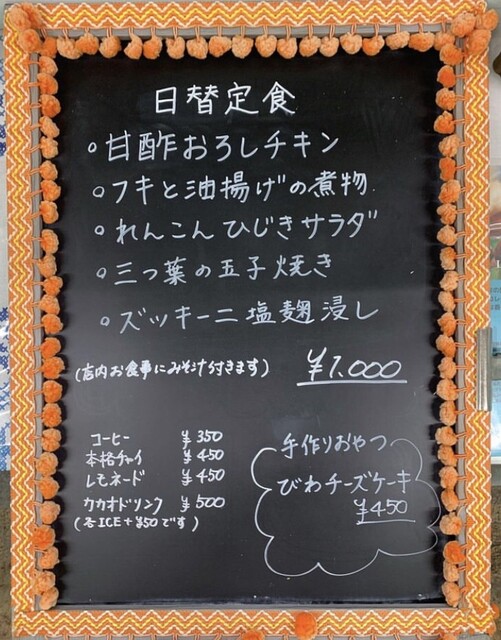 日替定食
○甘酢おろしチキン
○フキと油揚げの煮物
○れんこんひじきサラダ
○三つ葉の玉子焼き
○ズッキーニ塩麹浸し
(店内お食事にみそ汁付きます)
¥1.000
コーヒー ¥350
本格チャイ ¥450
レモネード ¥450
カカオドリンク ¥500
(各ICE+¥50です)
手作りおやつ
びわチーズケーキ
¥450